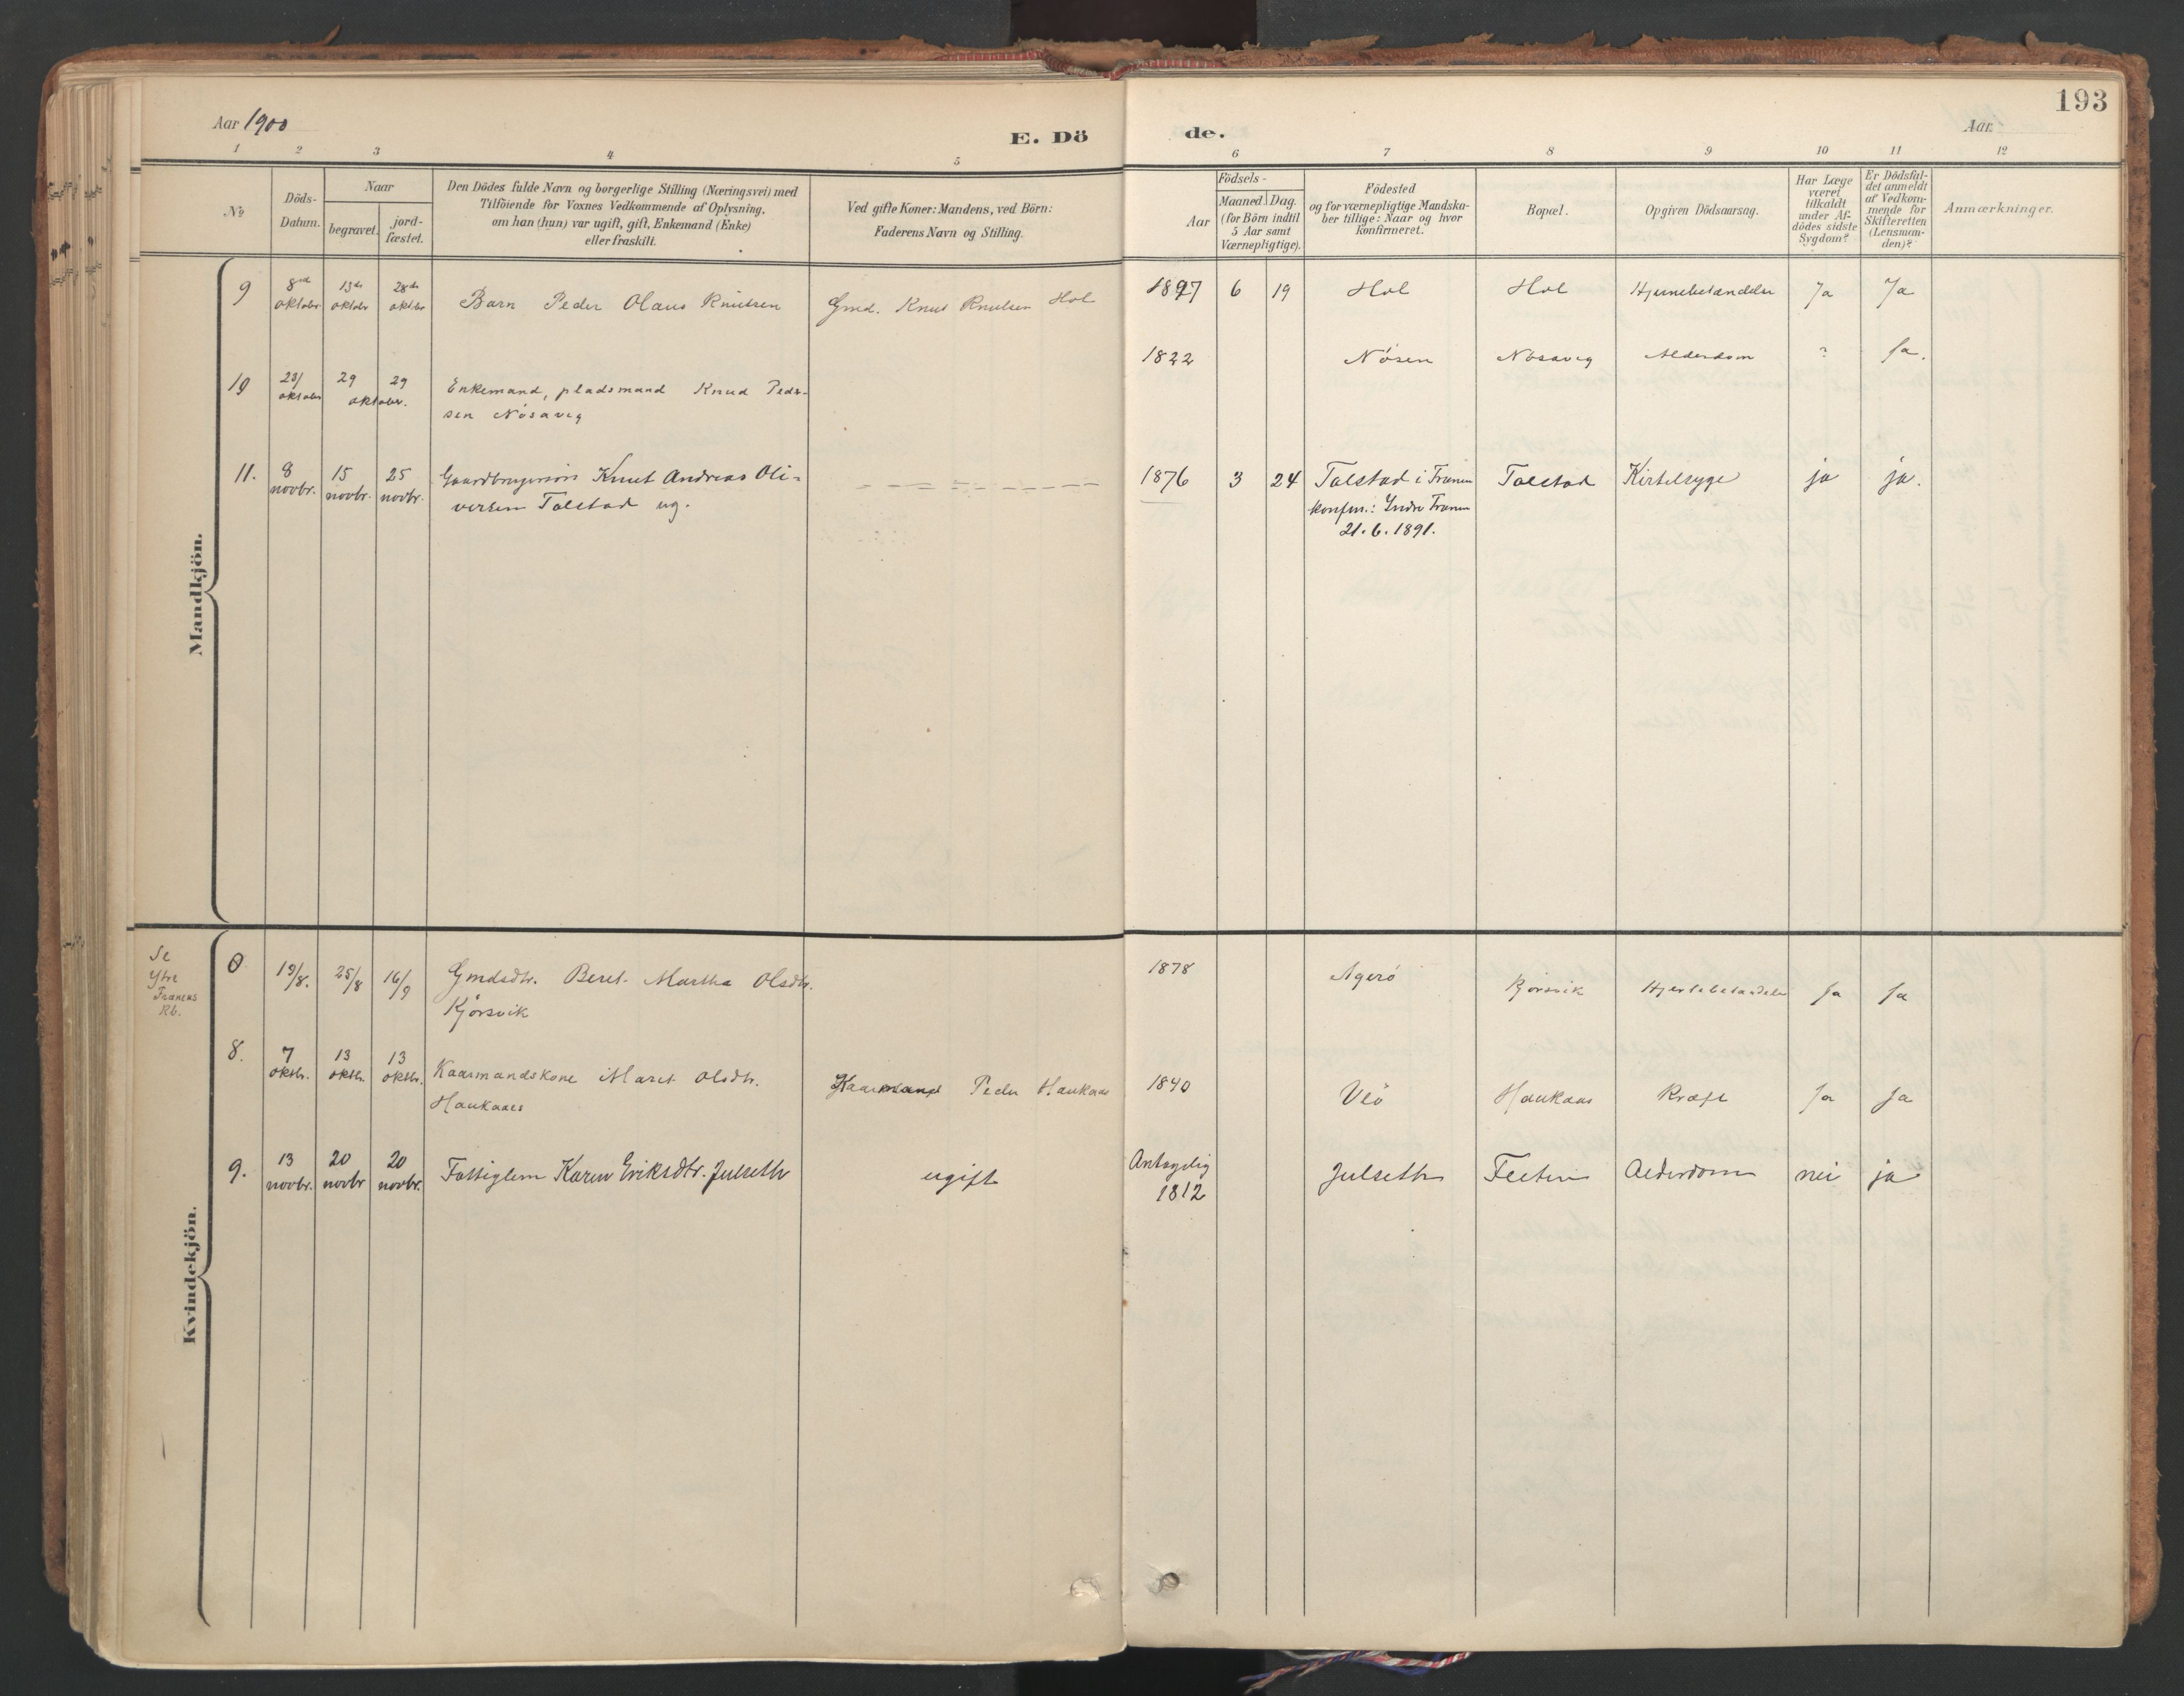 193
Aar 1900
E. Dö
de.
Aar
1 2 3 4 5 6 7 8 9 10 11 12
No
Döds-
Datum.
Naar
begravet.
jord-
fæstet.
Den Dödes fulde Navn og borgerlige Stilling (Næringsvei) med
Tilföiende for Voxnes Vedkommende af Oplysning,
om han (hun) var ugift, gift, Enkemand (Enke)
eller fraskilt.
Ved gifte Koner: Mandens, ved Börn:
Faderens Navn og Stilling.
Födsels-
Aar
Maaned. Dag.
(for Börn indtil
5 Aar samt
Værnepligtige).
Födested
og for værnepligtige Mandska-
ber tillige: Naar og hvor
konfirmeret.
Bopæl.
Opgiven Dödsaarsag.
Har Læge
været
tilkaldt
under Af-
dödes sidste
Sygdom?
Er Dödsfal-
det anmeldt
af Vedkom-
mende for
Skifteretten
(Lensman-
den)?
Anmærkninger.
Mandkjön.
9 8de oktober 13de oktober 28de oktober Barn Peder Olaus Knutsen Gmd. Knut Knutsen Hol 1897 6 19 Hol Hol Hjernebetændelse Ja Ja
10 23/ oktober 29 29 oktober. Enkemand, pladsmand Knud Peder-
sen Nösaveg 1822 Nösen Nösaveg Alderdom ? Ja.
11. 8 novbr. 15 novbr. 25 novbr. Gaardbrugersön Knut Andreas Oli-
versen Talstad ug. 1876 3 24 Talstad i Frænen Talstad Kirtelsyge ja ja.
konfm.: Indre Frænen
21.6.1891.
Kvindekjön.
Se
Ytre
Frænens
Kb.
0 19/8. 25/8 16/9 Gmdsdtr. Beret Martha Olsdtr.
Kjörsvik 1878 Agerö Kjörsvik Hjertebetændelse Ja Ja
8. 7 oktbr. 13 oktbr. 13 oktbr. Kaarmandskone Maret Olsdtr.
Haukaas Kaarmand Peder Haukaas 1840 Veö Haukaas Kræft Ja Ja
9. 13 novbr. 20 novbr 20 novbr. Fattiglem Karen Eriksdtr. Julseth ugift Antagelig
1812 Julseth Alderdom nei ja